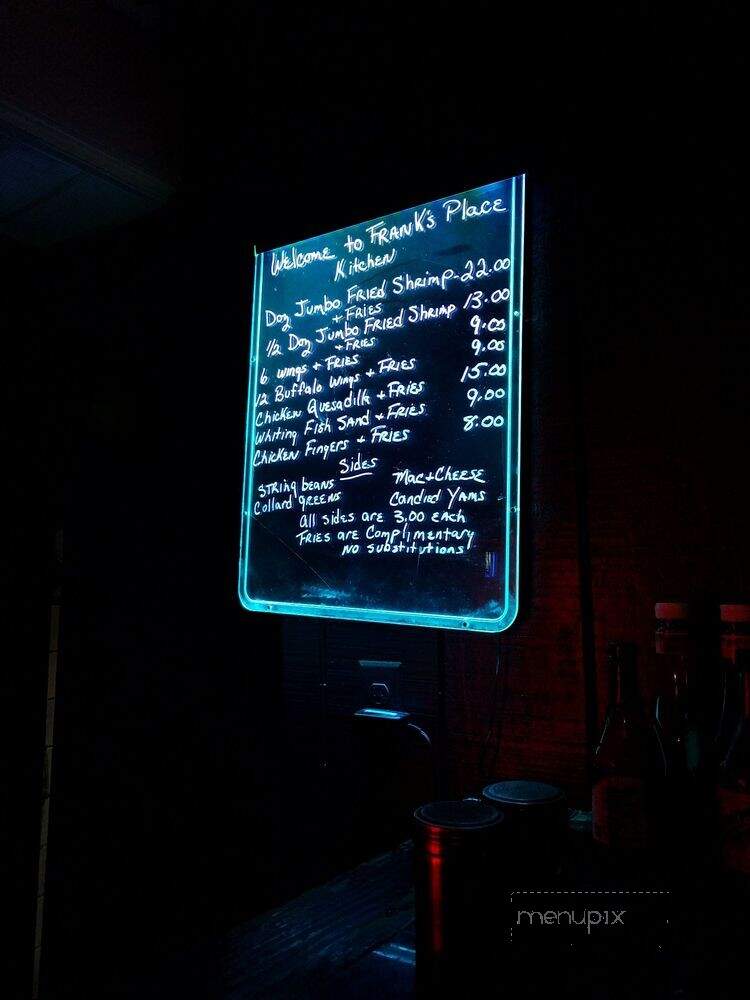 Welcome to FRANK's Place
Kitchen
Doz Jumbo FRied SHRimp - 22.00
+ FRies
1/2 Doz Jumbo FRied SHRimp 13.00
+ FRies
6 wings + FRies 9.00
12 Buffalo Wings + FRies 9.00
Chicken Quesadilla + FRies 15.00
Whiting Fish Sand + FRies 9.00
Chicken Fingers + FRies 8.00
Sides
STRing beans Mac + CHeese
Collard greens Candied Yams
all sides are 3.00 each
FRies are Complimentary
No substitutions
menupix